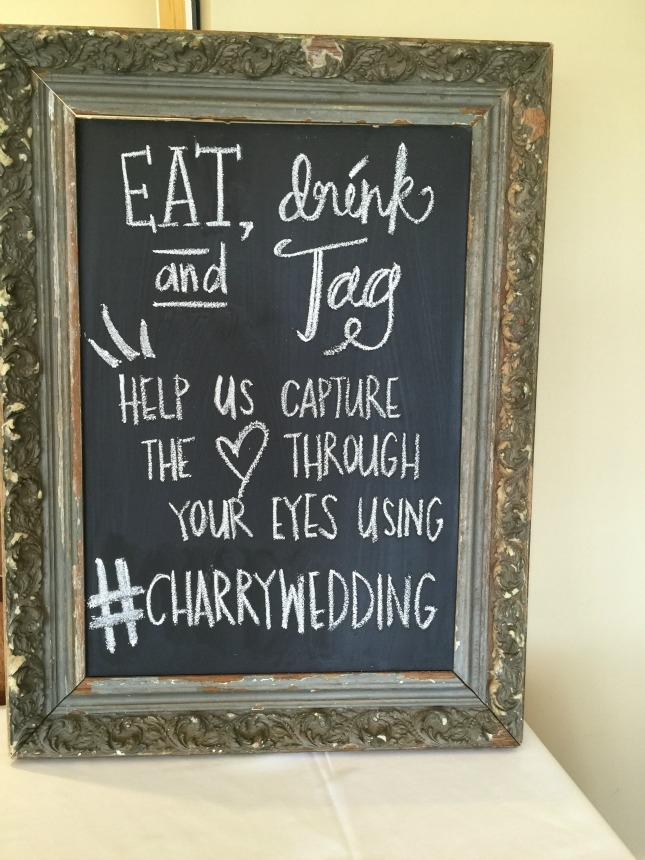 EAT, drink
and Tag
HELP US CAPTURE
THE ♡ THROUGH
YOUR EYES USING
#CHARRYWEDDING